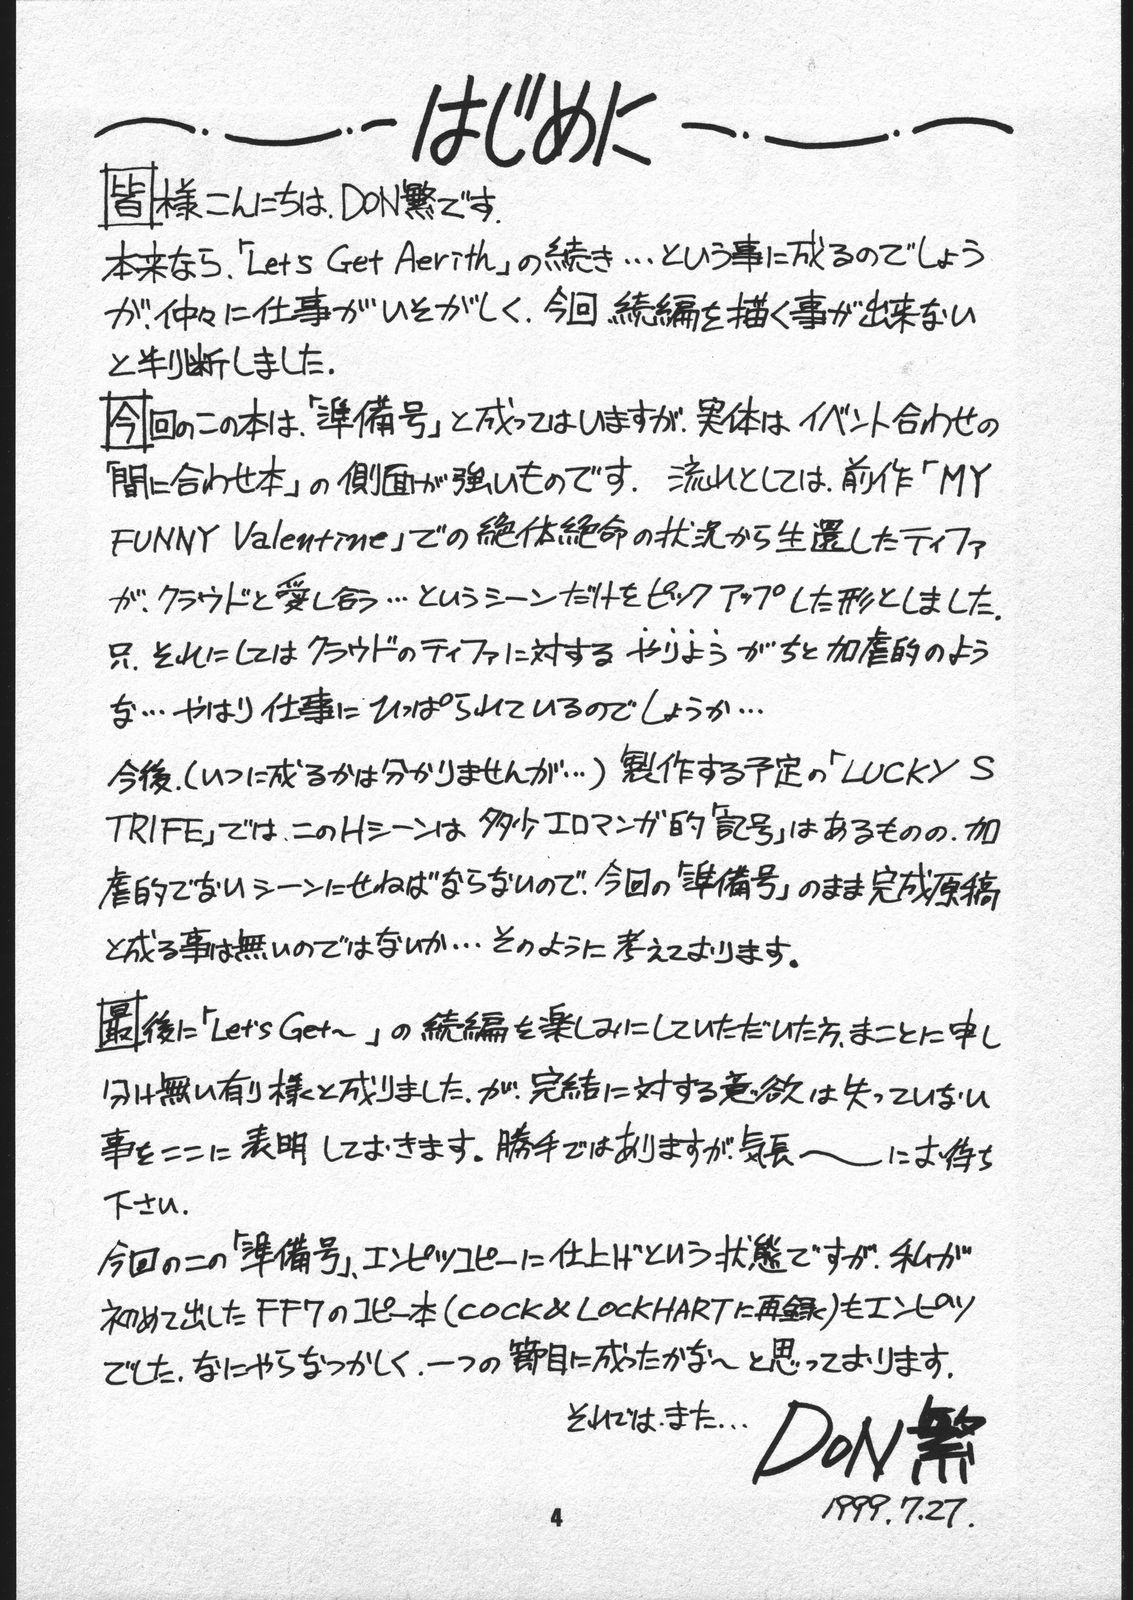 はじめに
皆様こんにちは、DON繁です。
本来なら、「Let's Get Aerith」の続き…という事に成るのでしょう
が、仲々に仕事がいそがしく、今回続編を描く事が出来ない
と判断しました。
今回のこの本は、「準備号」と成ってはいますが、実体はイベント合わせの
「間に合わせ本」の側面が強いものです。流れとしては、前作「MY
FUNNY Valentine」での絶体絶命の状況から生還したティファ
が、クラウドと愛し合う…というシーンだけをピックアップした形としました。
只、それにしてはクラウドのティファに対するやりようがちと加虐的のよう
な…やはり仕事にひっぱられているのでしょうか…
今後、(いつに成るかは分かりませんが…)製作する予定の「LUCKY S
TRIFE」では、このHシーンは多少エロマンガ的「記号」はあるものの、加
虐的でないシーンにせねばならないので、今回の「準備号」のまま完成原稿
と成る事は無いのではないか…そのように考えております。
最後に「Let's Get〜」の続編を楽しみにしていただいた方、まことに申し
分け無い有り様と成りました、が、完結に対する意欲は失っていない
事をここに表明しておきます。勝手ではありますが、気長〜にお待ち
下さい。
今回のこの「準備号」、エンピツコピーに仕上げという状態ですが、私が
初めて出したFF7のコピー本(COCK&LOCKHARTに再録)もエンピツ
でした。なにやらなつかしく、一つの節目に成ったかな〜と思っております。
それでは、また…
DON繁
1999.7.27.
4